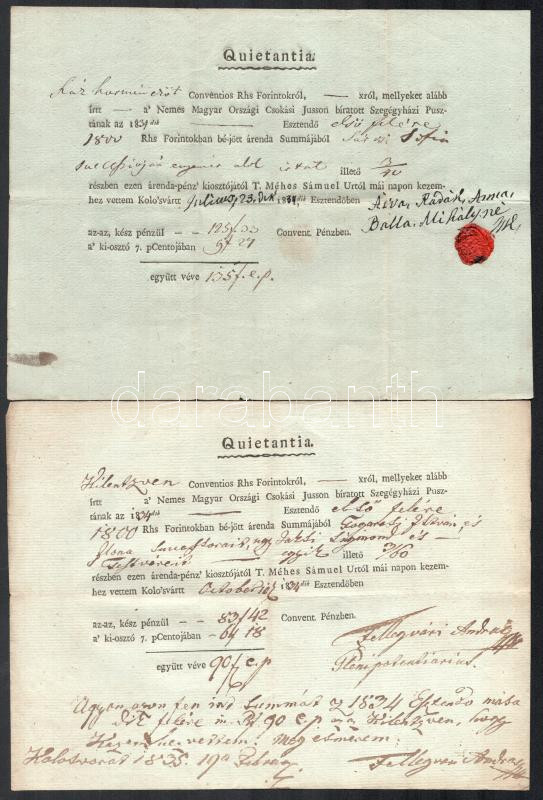 Quietantia.
Száz harminczöt Conventios Rhs Forintokról, — xról, mellyeket alább
írtt — a' Nemes Magyar Országi Csokási Jusson bíratott Szegegyházi Pusz-
tának az 1834dik — Esztendő első felére
1800 Rhs Forintokban bé-jött árenda Summájából
illető 3/40
részben ezen árenda-pénz' kiosztójától T. Méhes Sámuel Urtól mái napon kezem-
hez vettem Kolo'svártt Julius 23. dik 1834dik Esztendőben Árva, Rádák, Anna,
Balla. Mihályné
az-az, kész pénzül - - 125f. 33 Convent. Pénzben.
a' ki-osztó 7. pCentojában 9f 27
együtt véve 135f. c. p.
darabanth
Quietantia.
Kilentzven Conventios Rhs Forintokról, — xról, mellyeket alább
írtt a' Nemes Magyar Országi Csokási Jusson bíratott Szegegyházi Pusz-
tának az 1834dik — Esztendő első felére
1800 Rhs Forintokban bé-jött árenda Summájából István, és
Ilona Successorait, Jaksi Sigmond és —
Testvérei egyik illető /60
részben ezen árenda-pénz' kiosztójától T. Méhes Sámuel Urtól mái napon kezem-
hez vettem Kolo'svártt Octoberiek 1834dik Esztendőben
az-az, kész pénzül - - 83f 42 Convent. Pénzben.
a' ki-osztó 7. pCentojában 6f 18 Fellegvári András
együtt véve 90f c. p Plenipotentiarius.
Ugyan azon fen írtt Summát az 1834 Esztendő mása
dik felére in Rf 90 c. p az az Kilentzven, hogy
Kezemhez vettem, meg esmérem.
Kolosvárat 1835. 19a
Fellegvári András